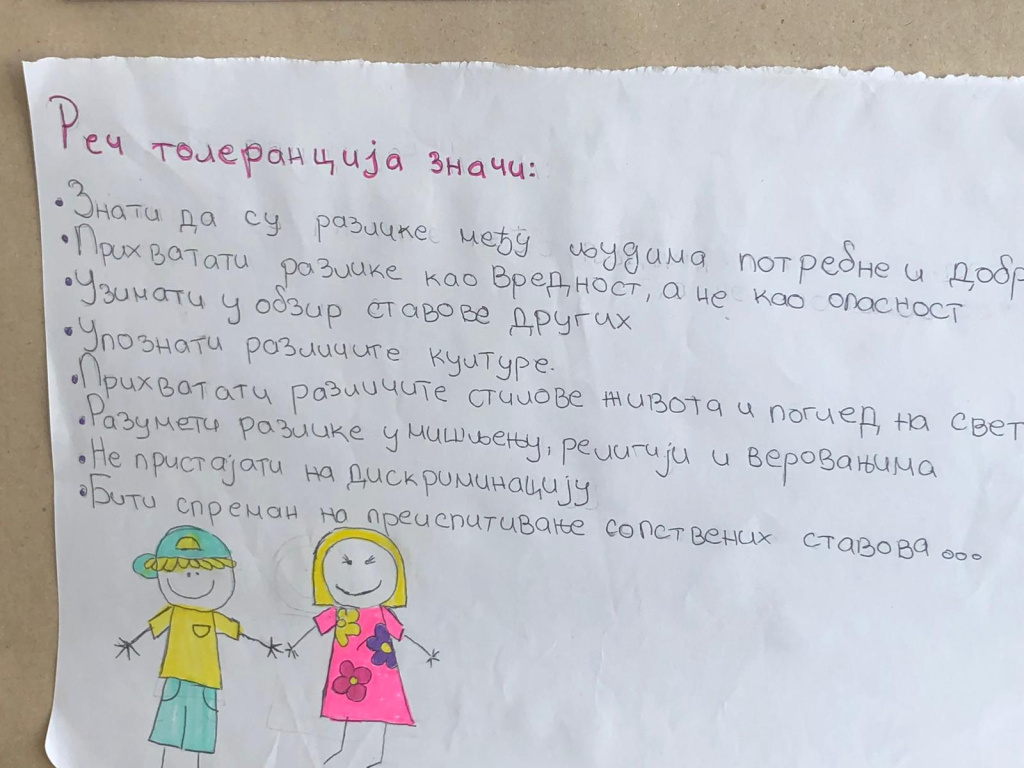 Реч толеранција значи:
• Знати да су разлике међу људима потребне и добр
• Прихватати разлике као вредност, а не као опасност
• Узимати у обзир ставове других
• Упознати различите културе.
• Прихватати различите стилове живота и поглед на свет
• Разумети разлике у мишљењу, религији и веровањима
• Не пристајати на дискриминацију
• Бити спреман на преиспитивање сопствених ставова...